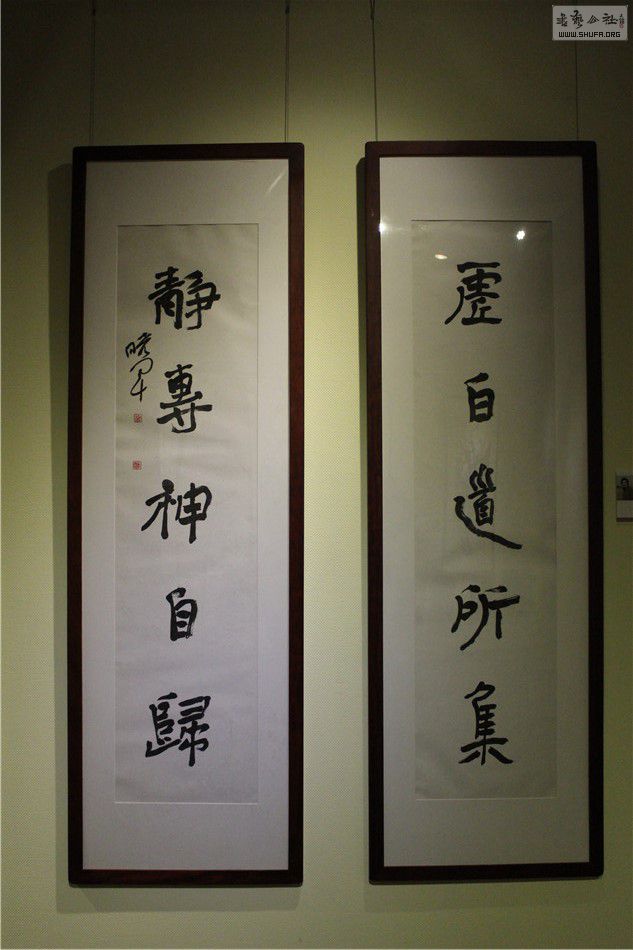 虛白道所集
靜專神自歸
書藝公社
WWW.SHUFA.ORG